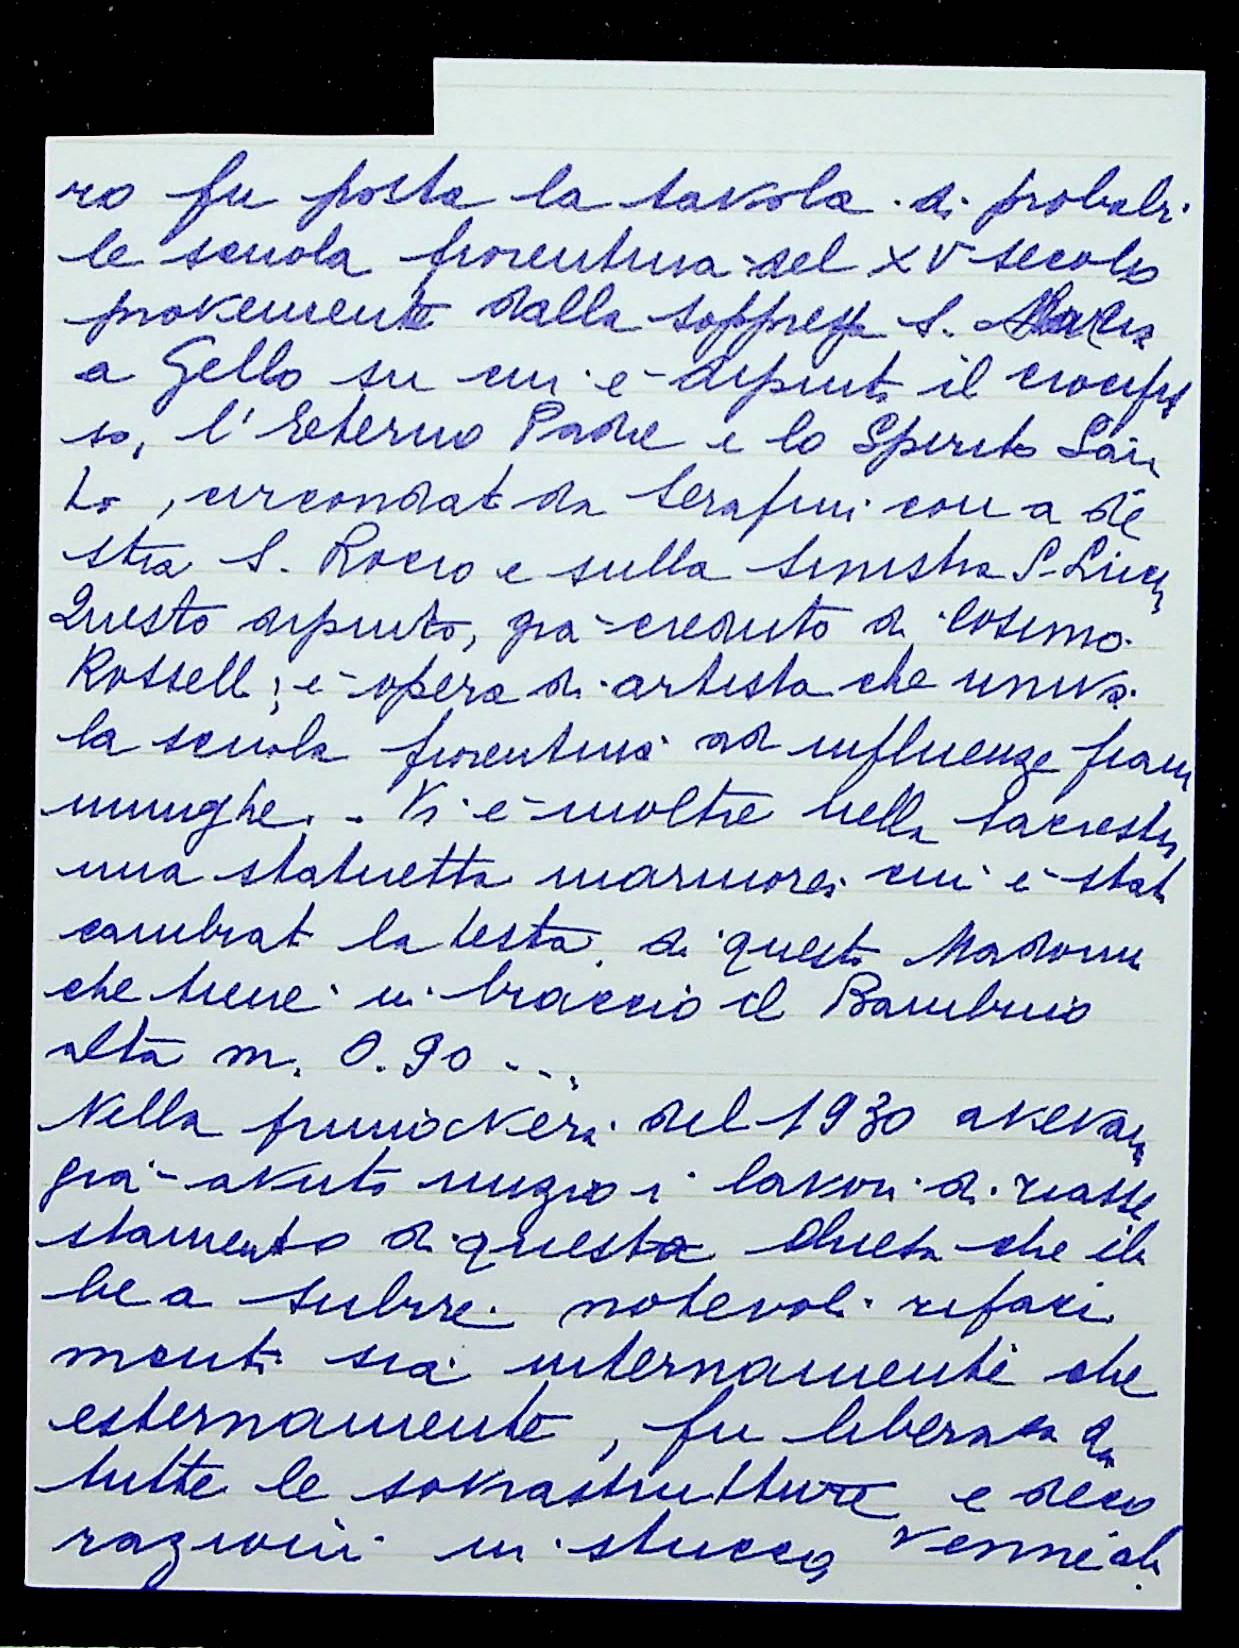 ro fu posta la tavola di probabi
le scuola fiorentina del XV secolo
proveniente dalla soppressa S. Maria
a Gello su cui è dipinto il crocifis
so, l'Eeterno Padre e lo Spirito San
to, circondati da Serafini con a de
stra S. Rocco e sulla sinistra S. Luca
Questo dipinto, già creduto di Cosimo
Rosselli, è opera di artista che univa
la scuola fiorentina ad influenze fiam
minghe. - Vi è inoltre nella sacrestia
una statuetta marmorea cui è stata
cambiata la testa, di questa Madonna
che tiene in braccio il Bambino
alta m. 0.90 ...
Nella primavera del 1930 avevan
già avuto inizio i lavori di riasse
stamento di questa Chiesa che eb
be a subire notevoli rifaci
menti sia internamente che
esternamente, fu liberata da
tutte le sovrastrutture e deco
razioni in stucco, venne ab